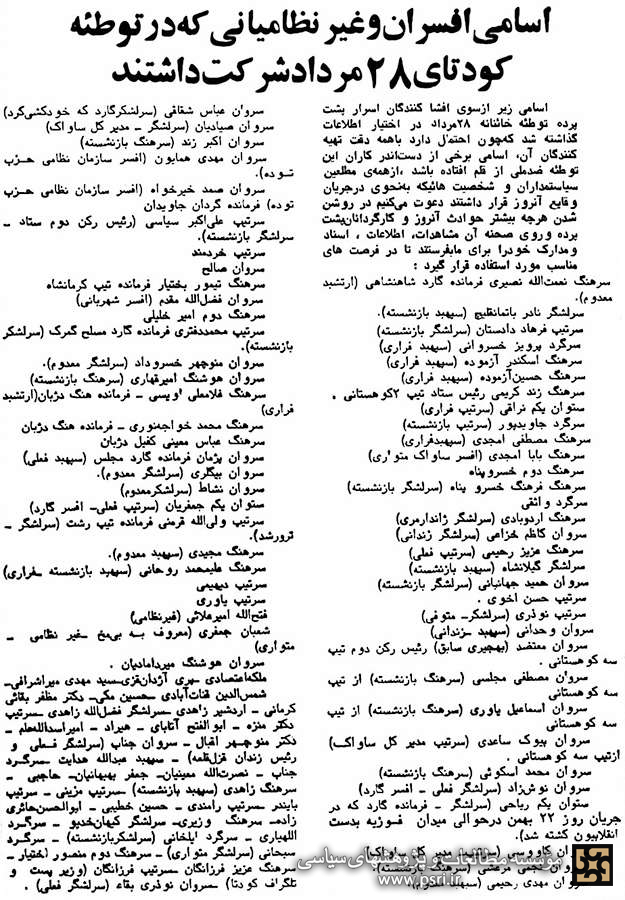 اسامی افسران وغیر نظامیانی که در توطئه
کودتای ۲۸ مرداد شرکت داشتند
اسامی زیر ازسوی افشا کنندگان اسرار پشت
پرده توطئه خائنانه ۲۸مرداد در اختیار اطلاعات
گذاشته شد که‌چون احتمال دارد باهمه دقت تهیه
کنندگان آن، اسامی برخی از دست‌اندر کاران این
توطئه ضدملی از قلم افتاده باشد ،ازهمه‌ی مطلعین
سیاستمداران و شخصیت هائیکه به‌نحوی درجریان
وقایع آنروز قرار داشتند دعوت می‌کنیم در روشن
شدن هرچه بیشتر حوادث آنروز و کارگردانان‌پشت
پرده وروی صحنه آن مشاهدات، اطلاعات ، اسناد
ومدارک خودرا برای مابفرستند تا در فرصت های
مناسب مورد استفاده قرار گیرد :
سرهنگ نعمت‌الله نصیری فرمانده گارد شاهنشاهی (ارتشبد
معدوم).
سرلشگر نادر باتمانقلیچ (سپهبد بازنشسته).
سرتیپ فرهاد دادستان (سرلشگر بازنشسته)
سرگرد پرویز خسروانی (سپهبد فراری)
سرهنگ اسکندر آزموده (سپهبد فراری)
سرهنگ حسین‌آزموده (سپهبد فراری)
سرهنگ زند کریمی رئیس ستاد تیپ ۲کوهستانی .
ستوان یکم نراقی (سرتیپ فراری)
سرگرد جاویدپور (سرتیپ بازنشسته)
سرهنگ مصطفی امجدی (سپهبدفراری)
سرهنگ بابا امجدی (افسر ساواک متواری)
سرهنگ دوم خسروپناه
سرهنگ فرهنگ خسرو پناه (سرلشگر بازنشسته)
سرگرد واثقی
سرهنگ اردوبادی (سرلشگر ژاندارمری)
سروان کاظم خزاعی (سرلشگر زندانی)
سرهنگ عزیز رحیمی (سرتیپ فعلی)
سرلشگر گیلانشاه (سپهبد بازنشسته)
سروان حمید جهانبانی (سرلشگر بازنشسته)
سرتیپ حسن اخوی .
سرتیپ نوذری (سرلشگر- متوفی)
سروان وحدانی (سپهبد ـزندانی)
سروان معتضد (بهجیری سابق) رئیس رکن دوم تیپ
سه کوهستانی .
سروان مصطفی مجلسی (سرهنگ بازنشسته) از تیپ
سه کوهستانی
سروان اسماعیل یاوری (سرهنگ بازنشسته) از تیپ
سه کوهستانی
سروان بیوک ساعدی (سرتیپ مدیر کل ساواک)
ازتیپ سه کوهستانی .
سروان محمد اسکوئی (سرهنگ بازنشسته)
سروان نوش‌زاد (سرلشگر فعلی - افسر گارد)
ستوان یکم ریاحی (سرلشگر - فرمانده گارد که در
جریان روز ۲۲ بهمن درحوالی میدان فوزیه بدست
انقلابیون کشته شد).
سروان کاووسی (سرلشگر مدیر کل ساواک)
سروان مهدی رحیمی (سپهبد معدوم).
سروان عباس شقاقی (سرلشکرگارد که خودکشی‌کرد)
سروان صیادیان (سرلشگر - مدیر کل ساواک)
سروان اکبر زند (سرهنگ بازنشسته)
سروان مهدی همایون (افسر سازمان نظامی حزب
توده).
سروان صمد خیرخواه (افسر سازمان نظامی حزب
توده) فرمانده گردان جاویدان
سرتیپ علی‌اکبر سیاسی (رئیس رکن دوم ستاد ـ
سرلشگر بازنشسته).
سرتیپ خردمند
سروان صالح
سرهنگ تیمور بختیار فرمانده تیپ کرمانشاه
سروان فضل‌الله مقدم (افسر شهربانی)
سرهنگ دوم امیر خلیلی
سرتیپ محمددفتری فرمانده گارد مسلح گمرک (سرلشکر
بازنشسته).
سروان منوچهر خسروداد (سرلشگر معدوم).
سروان هوشنگ امیرقهاری (سرهنگ بازنشسته)
سرهنگ غلامعلی اویسی - فرمانده هنگ دژبان(ارتشبد
فراری)
سرهنگ محمد خواجه‌نوری - فرمانده هنگ دژبان
سرهنگ عباس معینی کفیل دژبان
سروان پژمان فرمانده گارد مجلس (سپهبد فعلی)
سروان بیگلری (سرلشگر معدوم).
سروان نشاط (سرلشکرمعدوم)
ستوان یکم جعفریان (سرتیپ فعلی- افسر گارد)
سرتیپ ولی‌الله قرمنی فرمانده تیپ رشت (سرلشگر ـ
ترورشد).
سرهنگ مجیدی (سپهبد معدوم).
سرهنگ علیمحمد روحانی (سپهبد بازنشسته ـفراری)
سرتیپ دیهیمی
سرتیپ یاوری
فتح‌الله امیرعلائی (غیرنظامی)
شعبان جعفری (معروف به بی‌مخ ـغیر نظامی ـ
متواری)
سروان هوشنگ میردامادیان .
ملکه‌اعتضادی ـپری آژدان‌قزی‌ـسید مهدی میراشرافی‌ـ
شمس‌الدین قنات‌آبادی ـحسین مکی‌ـ دکتر مظفر بقائی
کرمانی ـ اردشیر زاهدی ـسرلشگر فضل‌الله زاهدی ـسرتیپ
دکتر منزه ـ ابوالفتح آتابای ـ هیراد ـ امیراسدالله‌علم ـ
دکتر منوچهر اقبال ـ سروان جناب (سرلشگر فعلی و
رئیس زندان قزل‌قلعه) ـ سپهبد عبدالله هدایت ـسرگرد
جناب ـ نصرت‌الله معینیان- جعفر بهبهانیان‌ـ حاجبی ـ
سرهنگ زاهدی (سپهبد بازنشسته) ـسرتیپ مزینی ـ سرتیپ
بایندر ـسرتیپ رامندی ـ حسین خطیبی ـ ابوالحسن‌حائری
زاده‌ـ سرهنگ وزیری‌ـ سرلشگر کیهان‌خدیو ـ سرگرد
اللهیاری ـ سرگرد ایلخانی (سرلشکربازنشسته) ـ سرگرد
سبحانی (سرلشگر متواری) ـ سرهنگ دوم منصور اختیار ـ
سرهنگ عزیز فرزانگان‌ـ سرتیپ فرزانگان (وزیر پست و
تلگراف کودتا) ـسروان نوذری بقاء (سرلشگر فعلی) .
مؤسسه مطالعات و پژوهشهای سیاسی
www.psri.ir